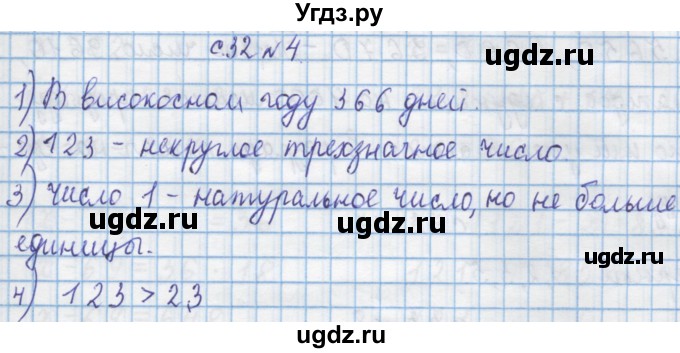 Угдз.ру
с.32 №4
1) В високосном году 366 дней.
2) 123 - некруглое трехзначное число.
3) число 1 - натуральное число, но не больше
ugdz.ru ugdz.ru
единицы.
ugdz.ru
4) 123 > 23
ugdz.ru ugdz.ru